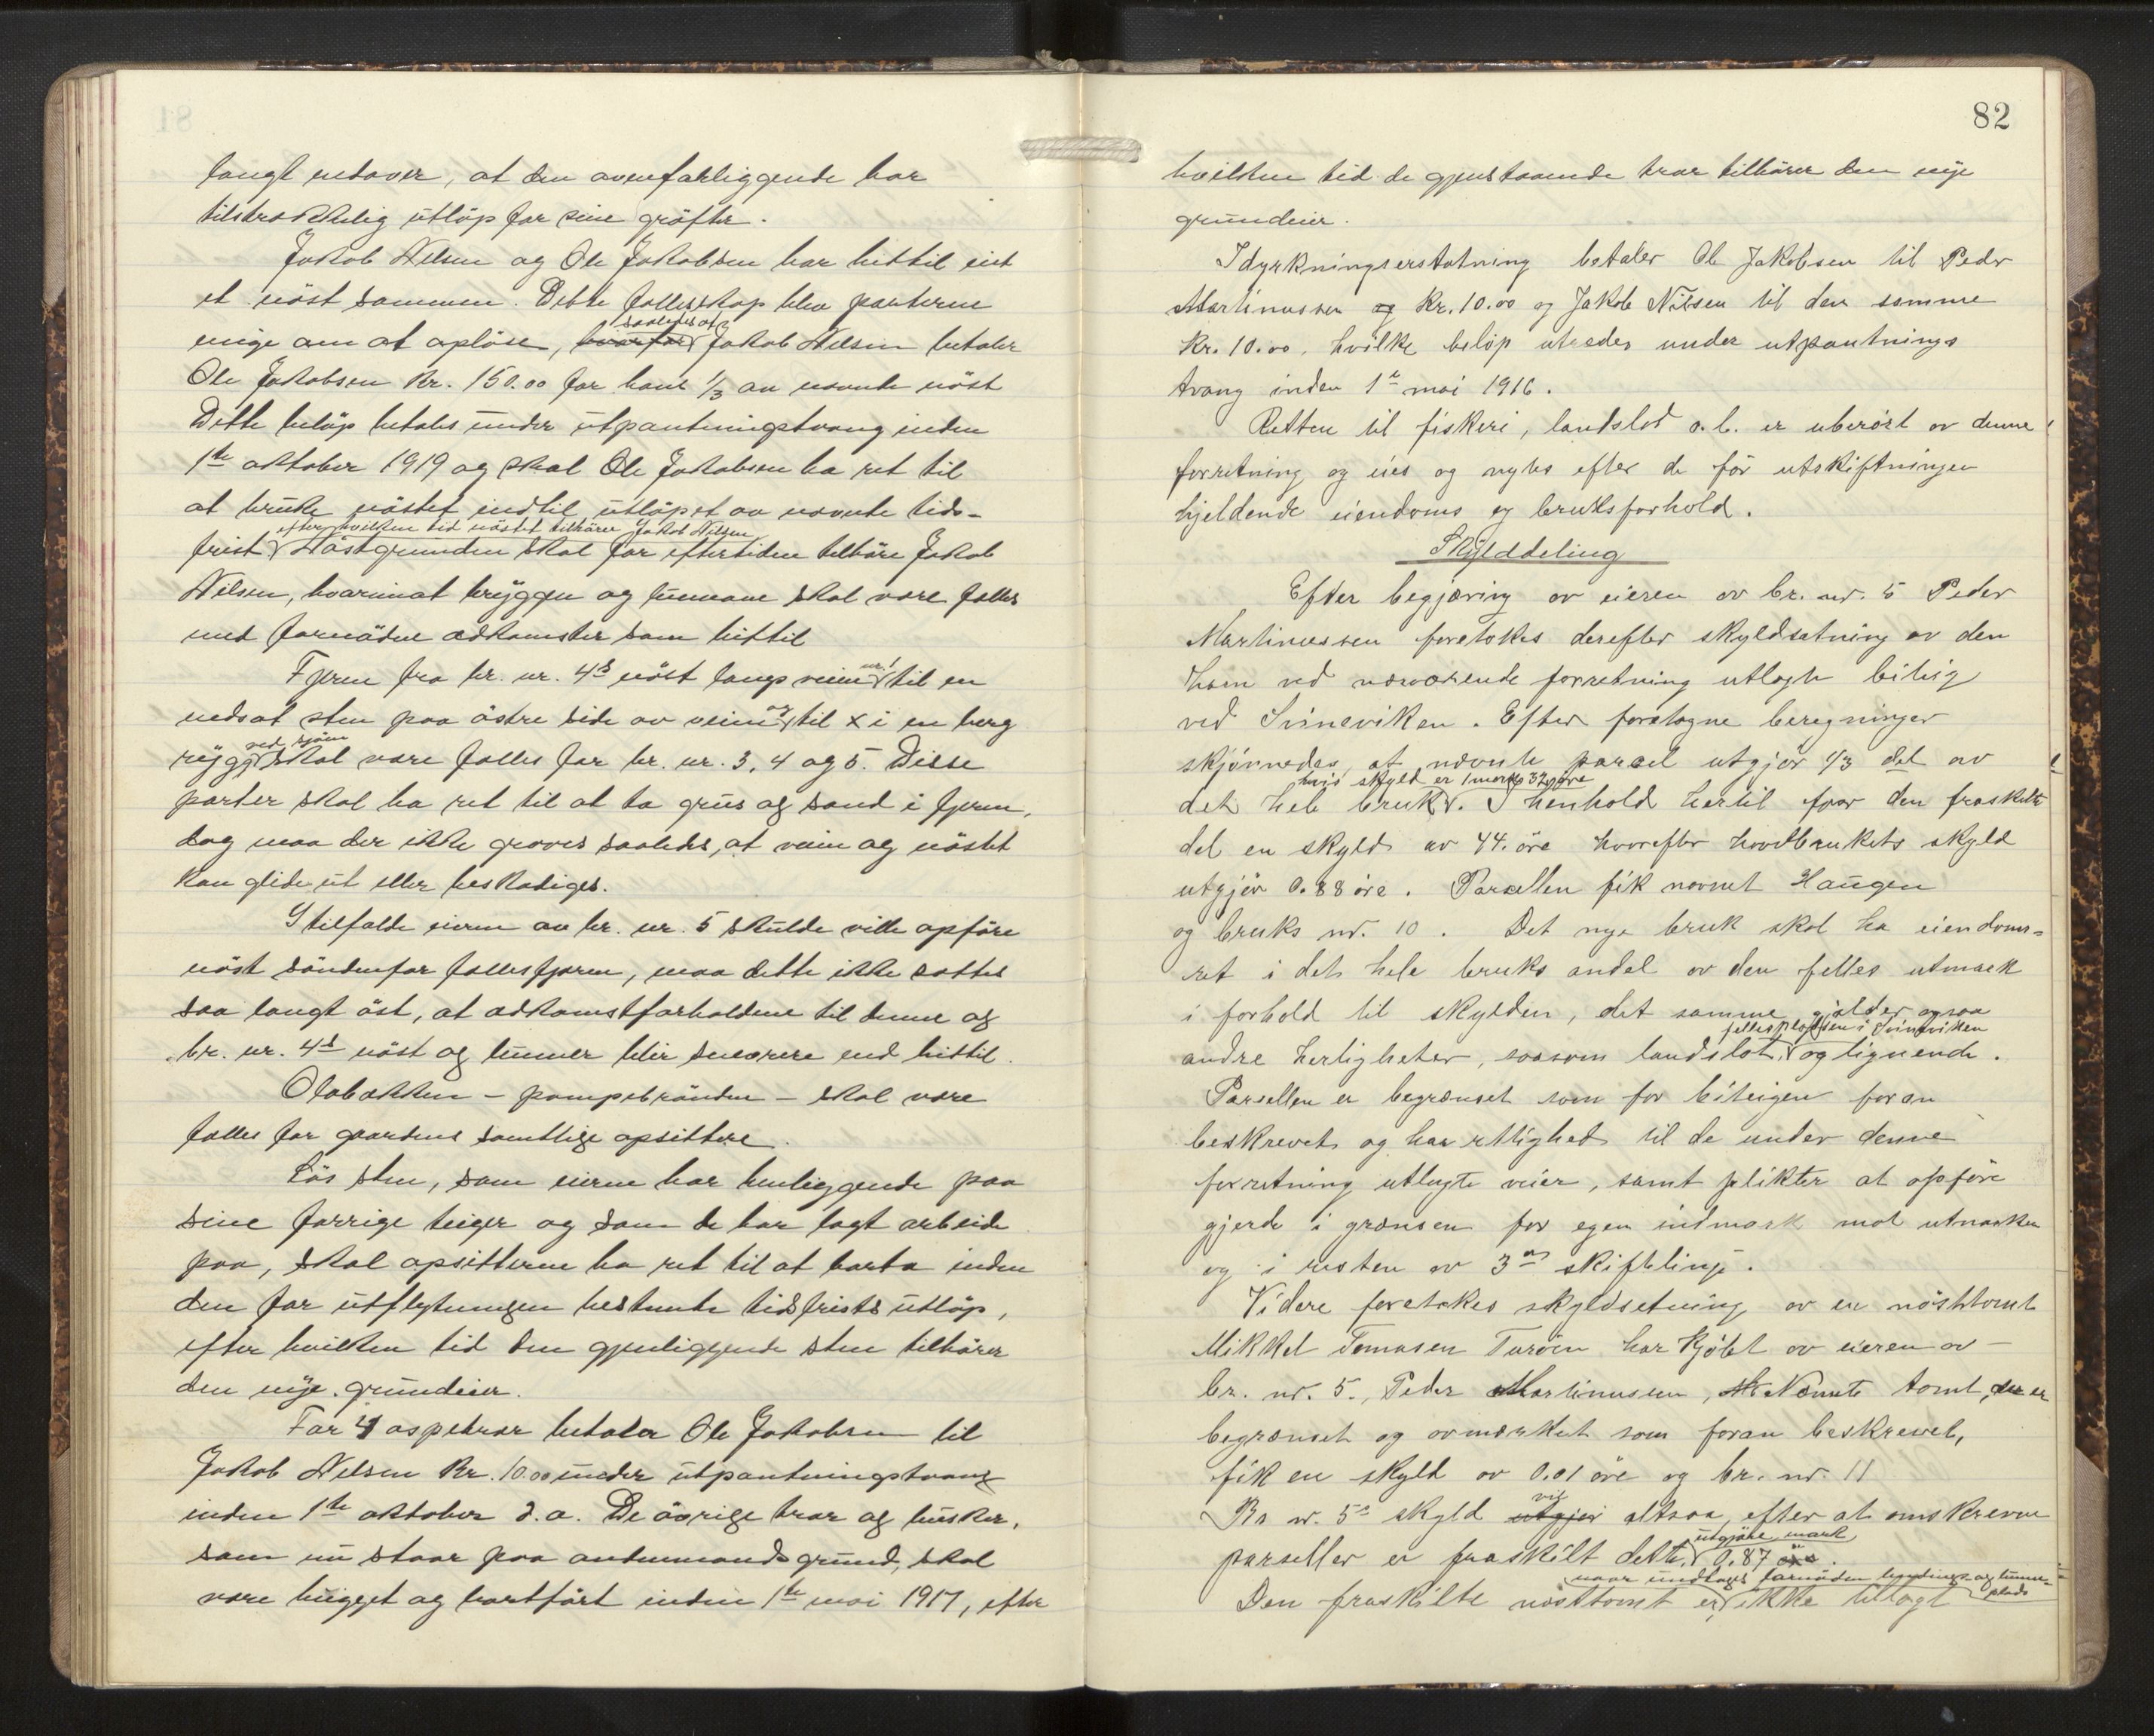 langt utover, at den ovenforliggende har
tilstrækkelig utløp for sine grøfter.
Jakob Nilsen og Ole Jakobsen har hittil eiet
et nöst sammen. Dette fællesskap blev parterne
enige om at opløse, hvorfor saaledes at Jakob Nilsen betaler
Ole Jakobsen Kr. 150.00 for hans 1/3 av nævnte nöst
Dette beløp betales under utpantningstvang inden
1ste oktober 1919 og skal Ole Jakobsen ha ret til
at bruke nöstet indtil utløpet av nævnte tids-
efter hvilken tid nöstet tilhører Jakob Nilsen
frist. Nöstgrunden skal for eftertiden tilhøre Jakob
Nilsen, hvorimot bryggen og lunnene skal være fælles
med fornødne adkomster som hittil
Fjæren fra br. nr. 4s nöst langs veien nr. 1 til en
nedsat sten paa østre side av veien og til x i en berg
rygg ved sjöen skal være fælles for br. nr. 3, 4 og 5. Disse
parter skal ha ret til at ta grus og sand i fjæren,
dog maa der ikke graves saaledes, at veien og nöstet
kan glide ut eller beskadiges.
I tilfælde eieren av br. nr. 5 skulde ville opføre
nöst søndenfor fællesfjæren, maa dette ikke sættes
saa langt øst, at adkomstforholdene til denne og
br. nr. 4s nöst og lunner blir snevrere end hittil.
Olabakken – pompebrönden – skal være
fælles for gaardens samtlige opsittere.
Løs sten, som eierne har henliggende paa
sine forrige teiger og som de har lagt arbeide
paa, skal opsitterne ha ret til at borta inden
den for utflytningen bestemte tidsfrists utløp,
efter hvilken tid den gjenliggende sten tilhører
den nye grundeier.
For 4 aspetrær betaler Ole Jakobsen til
Jakob Nilsen Kr. 10.00 under utpantningstvang
inden 1ste oktober d.a. De øvrige trær og busker,
som nu staar paa andenmands grund, skal
være hugget og bortført inden 1ste mai 1917, efter
82
hvilken tid de gjenstaaende trær tilhører den nye
grundeier.
Idyrkningserstatning betaler Ole Jakobsen til Peder
Martinussen og Kr. 10.00 og Jakob Nilsen til den samme
Kr. 10.00, hvilke beløp utredes under utpantnings
tvang inden 1ste mai 1916.
Retten til fiskeri, landslod o.l. er uberört av denne
forretning og eies og nytes efter de för utskiftningen
hjeldende eiendoms og bruksforhold.
Skylddeling
Efter begjæring av eieren av br. nr. 5 Peder
Martinussen foretokes derefter skyldsætning av den
ham ved nærværende forretning utlagte biteig
ved Svineviken. Efter foretagne beregninger
skjønnedes, at nævnte parsel utgjør 1/3 del av
hvis skyld er 1 mark 32 øre
det hele bruk. I henhold hertil faar den fraskilte
del en skyld av 44. öre hvorefter hovedbrukets skyld
utgjör 0.88 öre. Parsellen fik navnet Haugen
og bruks nr. 10. Det nye bruk skal ha eiendoms-
ret i det hele bruks andel av den felles utmark
i forhold til skylden, det samme gjælder ogsaa
fellespladsen i Svineviken
andre herligheter, saasom landslot, og lignende.
Parsellen er begrænset som for biteigen foran
beskrevet og har rettighet til de under denne
forretning utlagte veier, samt plikter at opföre
gjerde i grænsen for egen indmark mot utmarken
og i resten av 3die skiftelinje.
Videre foretakes skyldsetning av en nöstetomt
Mikkel Tomasen Turöen har kjöbt av eieren av –
br. nr. 5, Peder Martinussen, Nævnte tomt, der er
begrænset og avmerket som foran beskrevet,
fik en skyld av 0,01 öre og br. nr. 11
Br nr. 5s skyld utgjör vil altsaa efter at omskrevne
utgjöre mark
parseller er fraskilt dette, 0,87 öre.
naar undtages fornøden bygnings- og lunne-
plads
Den fraskilte nösttomt er ikke tillagt